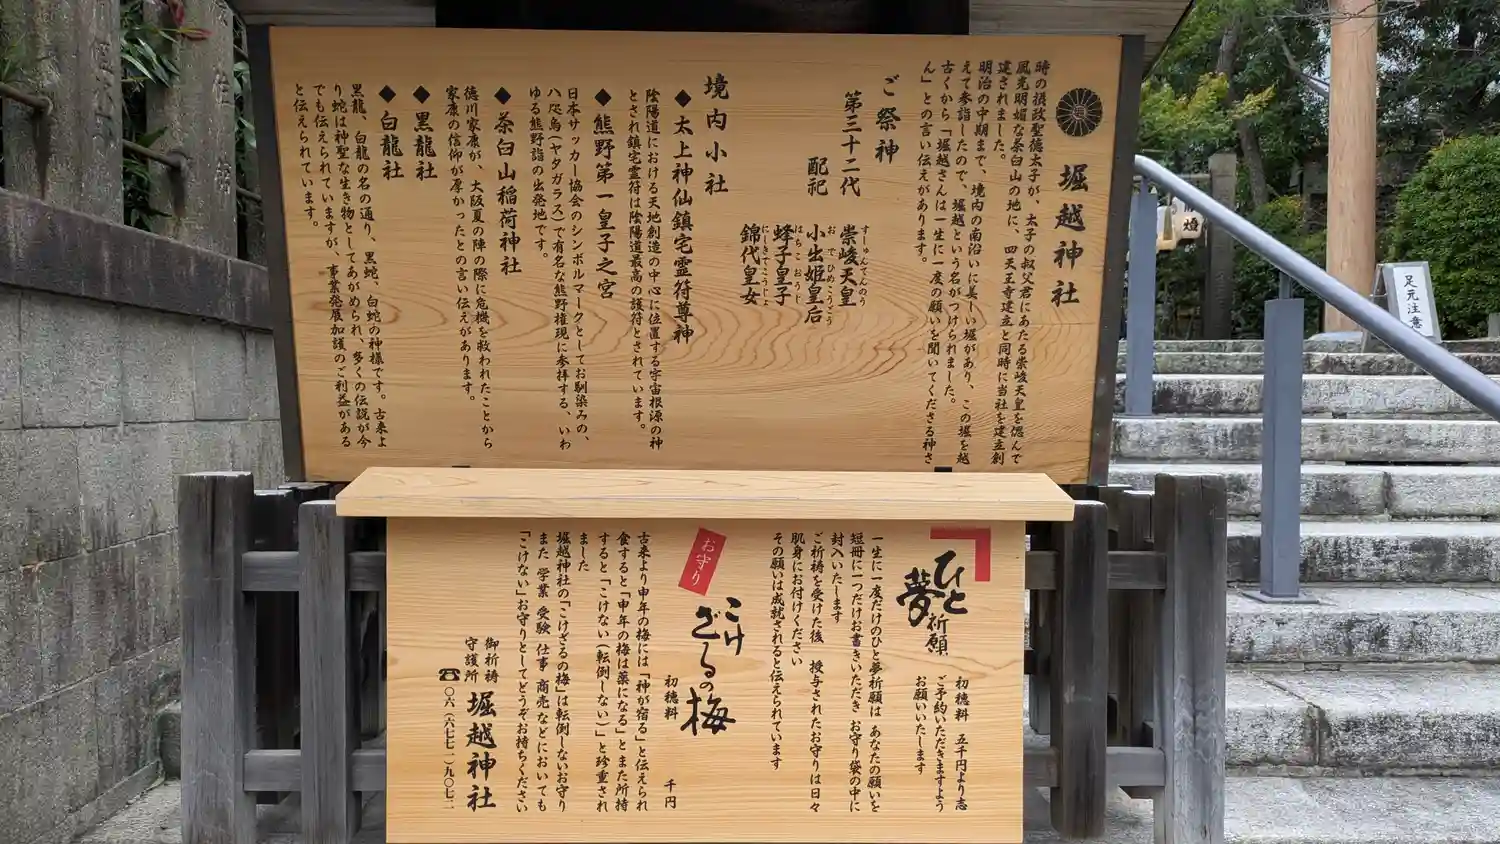 堀越神社
時の摂政聖徳太子が、太子の叔父君にあたる崇峻天皇を偲んで
風光明媚な茶臼山の地に、四天王寺建立と同時に当社を建立創
建されました。
明治の中期まで、境内の南沿いに美しい堀があり、この堀を越
えて参詣したので、堀越という名がつけられました。
古くから「堀越さんは一生に一度の願いを聞いてくださる神さ
ん」との言い伝えがあります。
ご祭神
第三十二代 崇峻天皇
すしゅんてんのう
配祀 小出姫皇后
おでひめこうごう
蜂子皇子
はちこおうじ
錦代皇女
にしきてこうじょ
境内小社
◆太上神仙鎮宅霊符尊神
陰陽道における天地創造の中心に位置する宇宙根源の神
とされ鎮宅霊符は陰陽道最高の護符とされています。
◆熊野第一皇子之宮
日本サッカー協会のシンボルマークとしてお馴染みの、
八咫烏(ヤタガラス)で有名な熊野権現に参拝する、いわ
ゆる熊野詣の出発地です。
◆茶臼山稲荷神社
徳川家康が、大阪夏の陣の際に危機を救われたことから
家康の信仰が厚かったとの言い伝えがあります。
◆黒龍社
◆白龍社
黒龍、白龍の名の通り、黒蛇、白蛇の神様です。古来よ
り蛇は神聖な生き物としてあがめられ、多くの伝説が今
でも伝えられていますが、事業発展加護のご利益がある
と伝えられています。
ひと夢祈願
初穂料 五千円より志
ご予約いただきますよう
お願いいたします
一生に一度だけのひと夢祈願は あなたの願いを
短冊に一つだけお書きいただき お守り袋の中に
封入いたします
ご祈祷を受けた後 授与されたお守りは日々
肌身にお付けください
その願いは成就されると伝えられています
お守り
こけざるの梅
初穂料 千円
古来より申年の梅には「神が宿る」と伝えられ
食すると「申年の梅は薬になる」とまた所持
すると「こけない(転倒しない)」と珍重され
ました
堀越神社の「こけざるの梅」は転倒しないお守り
また 学業 受験 仕事 商売などにおいても
「こけない」お守りとしてどうぞお持ちください
御祈祷
守護所
堀越神社
☎〇六(六七七一)九〇七二
足元注意